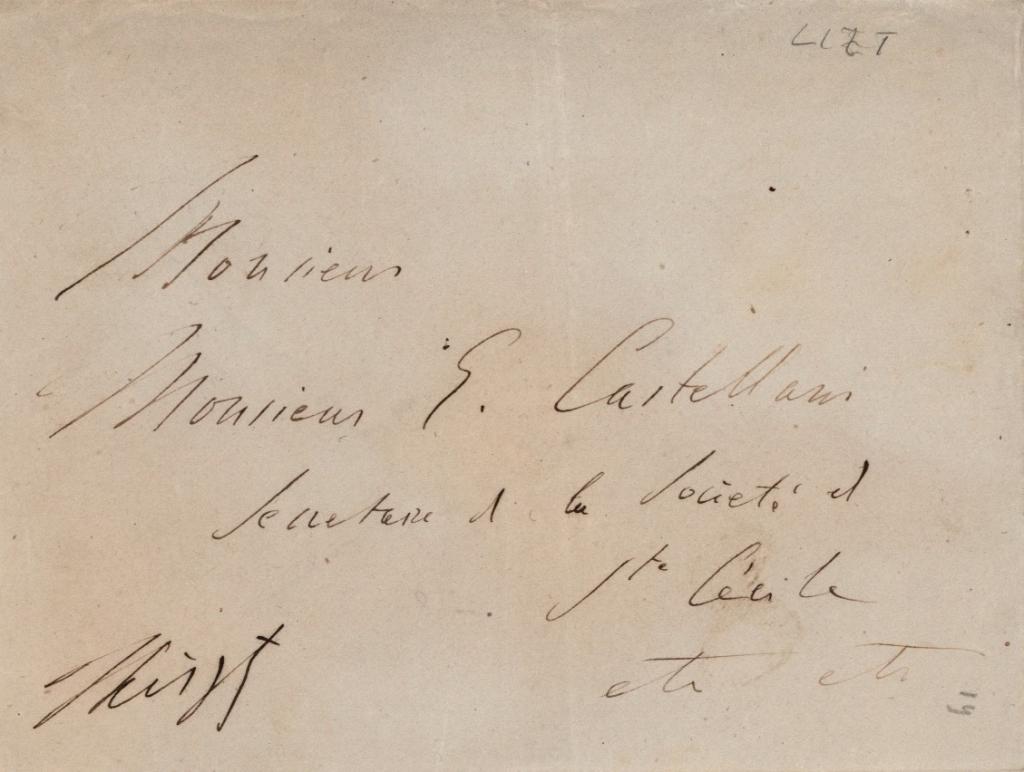 LIZT
Monsieur
Monsieur E. Castellani
Secretaire d la Societé d
Ste Cécile
etc etc
FLiszt